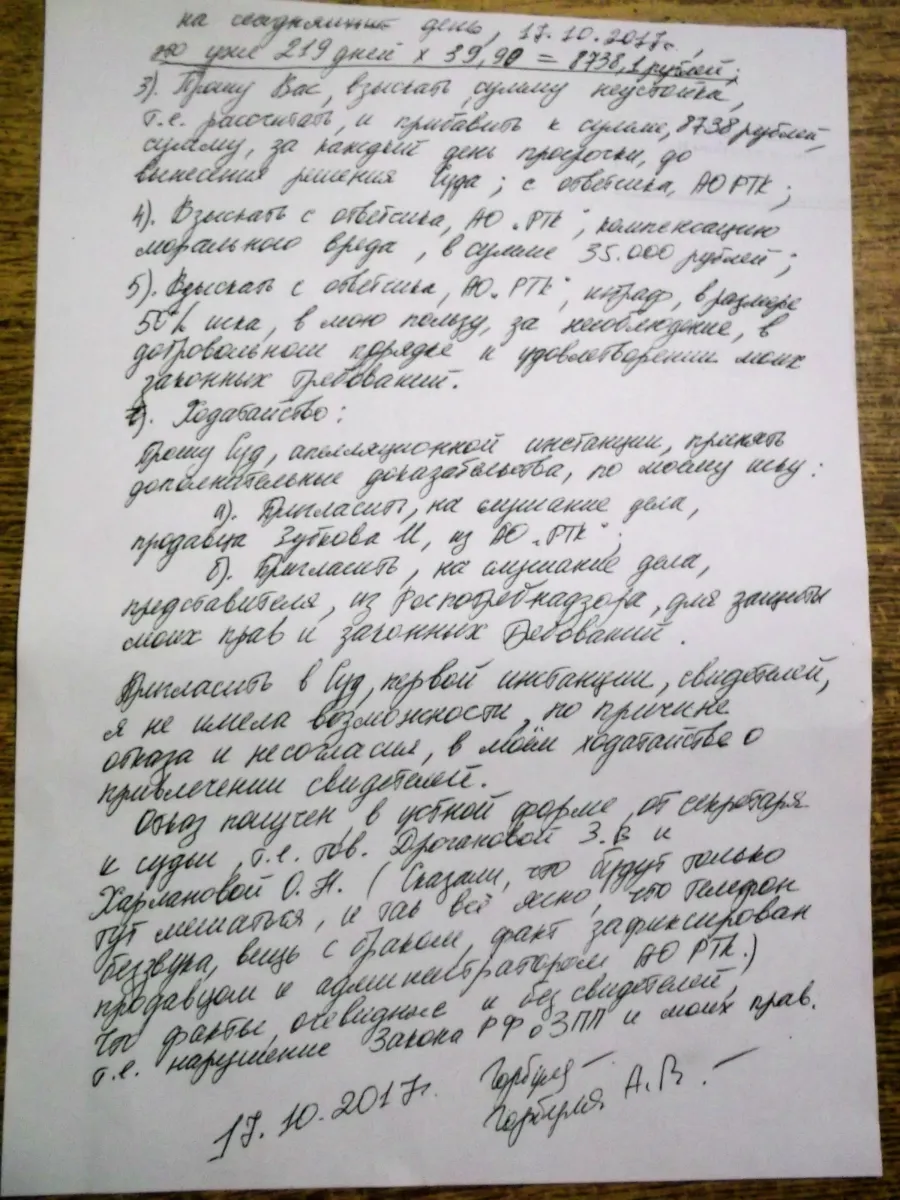 на сегодняшний день, 17.10.2017г.,
это уже 219 дней х 39,90 = 8738,1 рублей;
3). Прошу Вас, взыскать, сумму неустойка,
т.е. рассчитать, и прибавить к сумме, 8738 рублей,
сумму, за каждый день просрочки, до
вынесения решения Суда; с ответчика, АО РТК;
4). Взыскать с ответчика, АО „РТК", компенсацию
морального вреда, в сумме 35.000 рублей;
5). Взыскать с ответчика, АО „РТК", штраф, в размере
50% иска, в мою пользу, за несоблюдение, в
добровольном порядке и удовлетворении моих
законных требований.
Ходатайство:
Прошу Суд, апелляционной инстанции, принять
дополнительные доказательства, по моему иску:
а). Пригласить, на слушание дела,
продавца Зубкова И, из АО „РТК";
б). Пригласить, на слушание дела,
представителя, из Роспотребнадзора, для защиты
моих прав и законных требований.
Пригласить в Суд, первой инстанции, свидетелей,
я не имела возможности, по причине
отказа и несогласия, в моём ходатайстве о
привлечении свидетелей.
Отказ получен в устной форме, от секретаря
и судьи, т.е. тов. Дрогановой З.В и
Харлановой О.Н. (Сказали, что будут только
тут мешаться, и так всё ясно, что телефон
без звука, вещь с браком, факт зафиксирован
продавцом и администратором АО РТК.)
Что факты, очевидные и без свидетелей,
т.е. нарушение Закона РФ о ЗПП и моих прав.
17.10.2017г. Горбуля
Горбуля А.В.